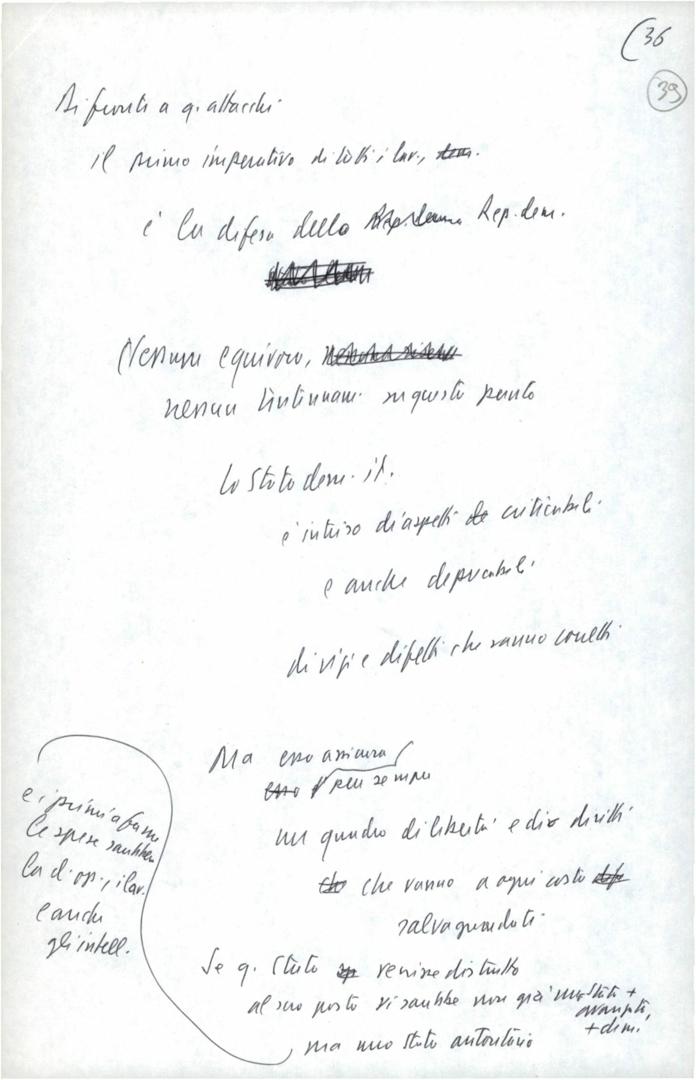 (36
39
Di fronte a q. attacchi
il primo imperativo di tutti i lav.,
è la difesa della Rep. dem.
(Nessun equivoco,
nessun tentennam. su questo punto
Lo Stato dem. it.
è intriso di aspetti criticabili
e anche deprecabili
di vizi e difetti che vanno corretti
Ma esso assicura
pur sempre
un quadro di libertà e di diritti
che vanno a ogni costo
salvaguardati
Se q. Stato venisse distrutto
al suo posto vi sarebbe non già uno Stato +
avanzato,
+ dem.
ma uno Stato autoritario
e i primi a farne
le spese sarebbero
la cl. op., i lav.
e anche
gli intell.